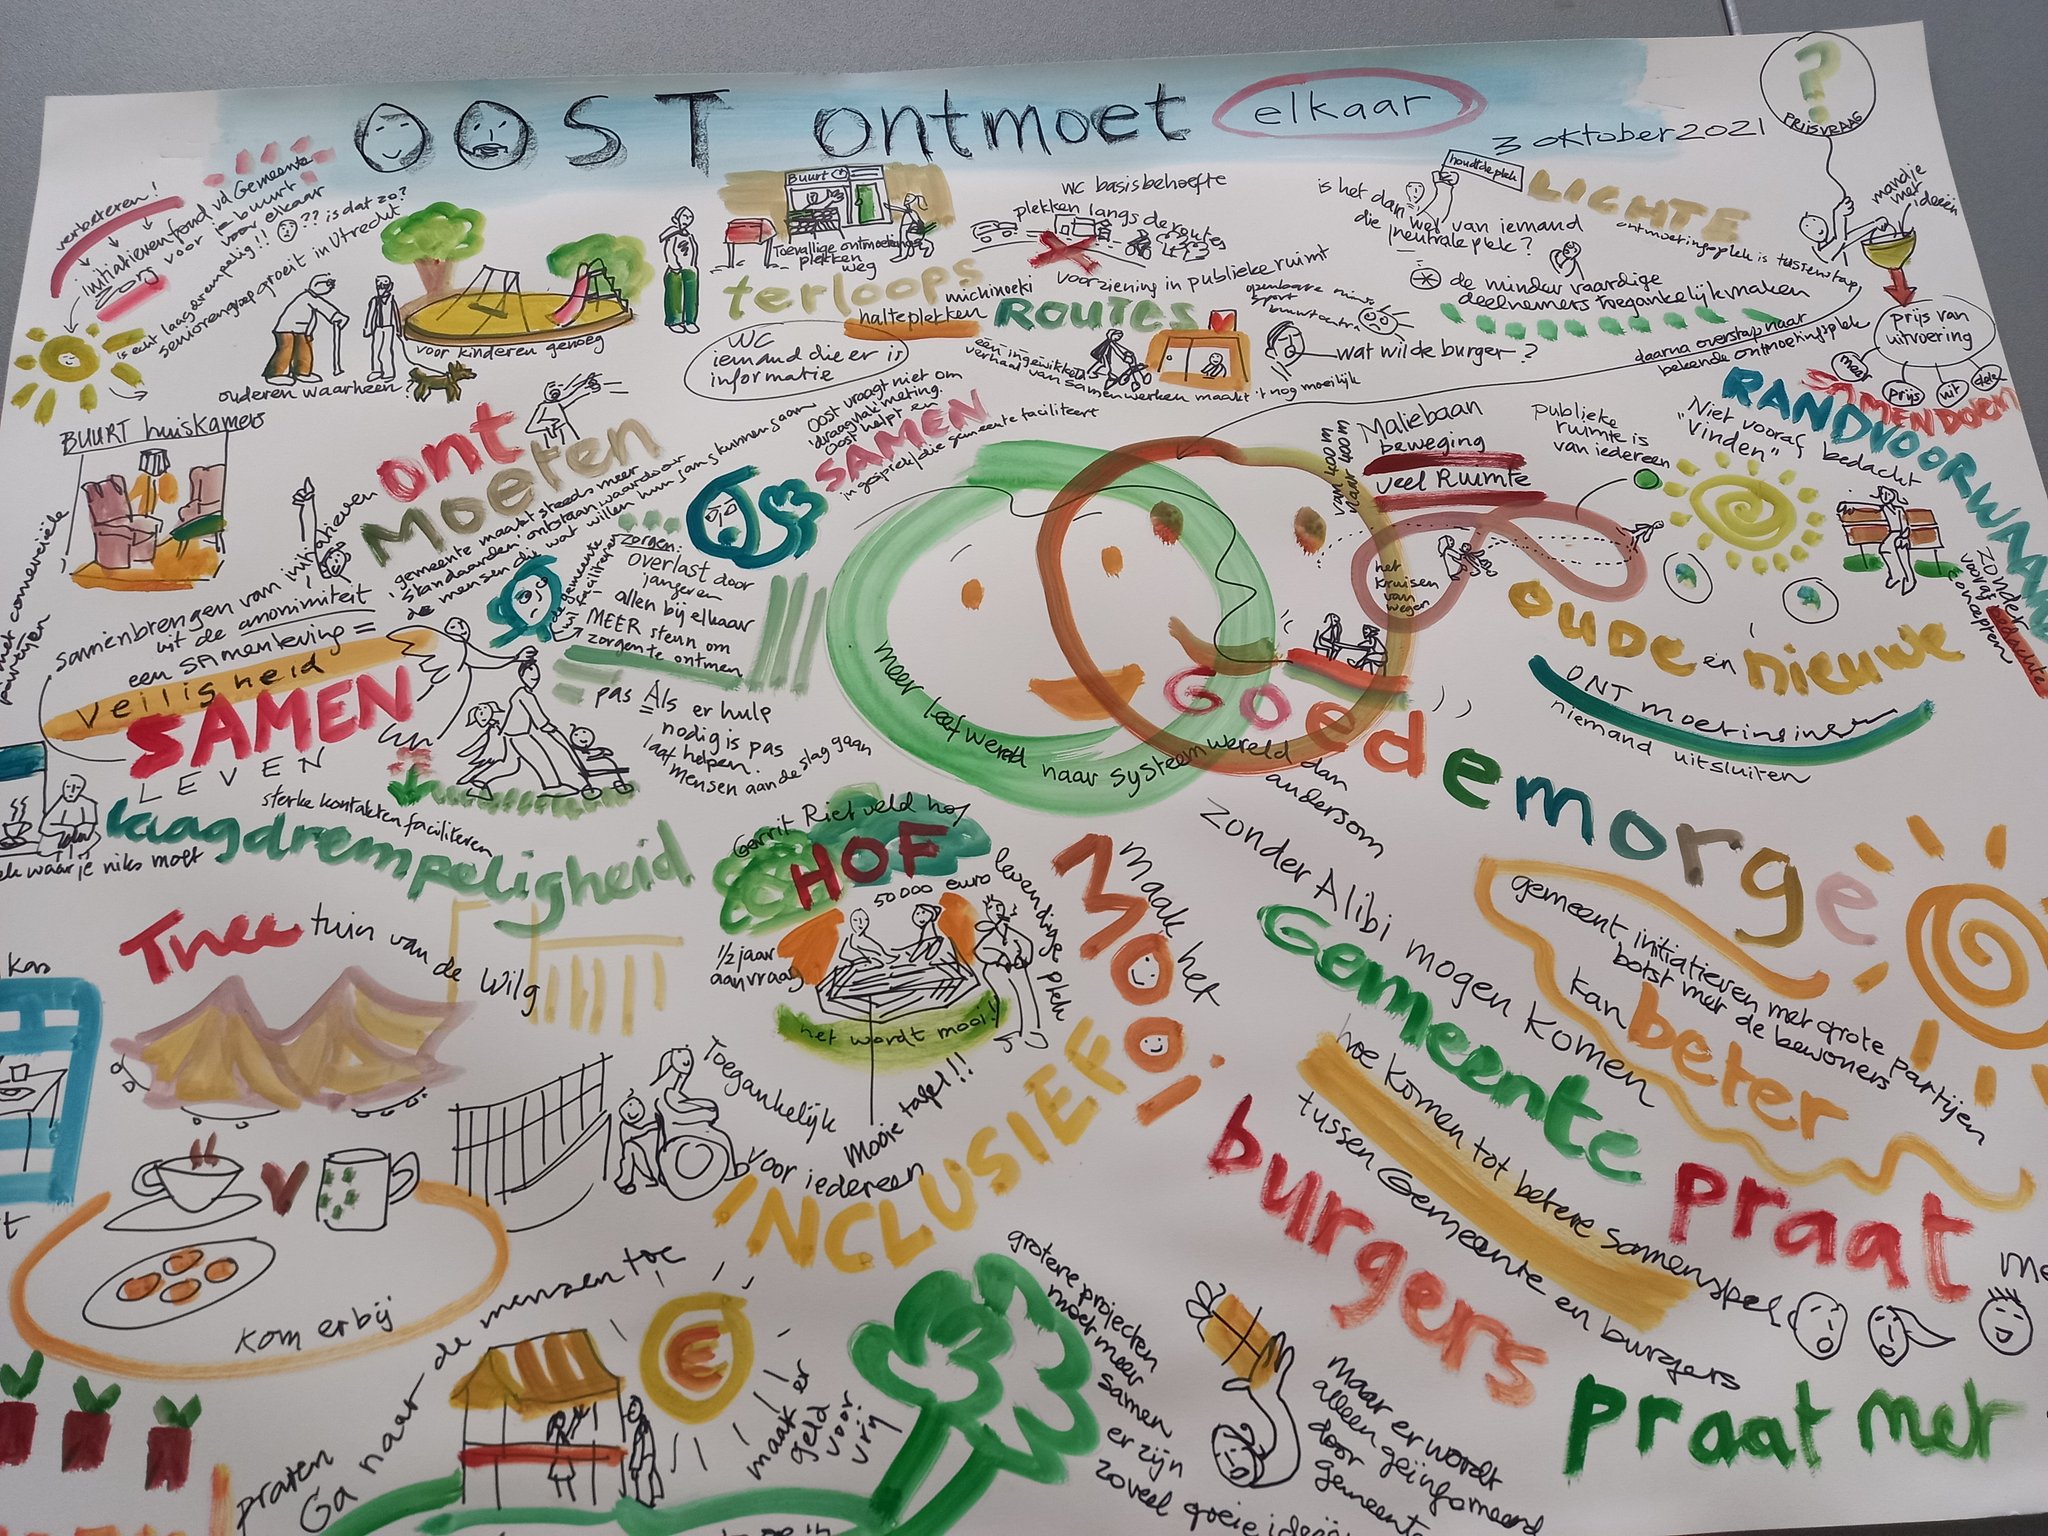 OOST ontmoet elkaar
3 oktober 2021
?
PRIJSVRAAG
mandje
met
ideeën
verbeteren!
initiatievenfonds vd Gemeente
zorg voor je buurt
voor elkaar
is echt laagdrempelig!! ?? is dat zo?
seniorengroep groeit in Utrecht
ouderen waarheen?
voor kinderen genoeg
Buurt
Toevallige ontmoetings
plekken
weg
terloops
halteplekken
WC
iemand die er is
informatie
WC basisbehoefte
plekken langs de route
voorziening in publieke ruimt
ROUTES
openbare ruimte
sport
buurtcentra
wat wil de burger?
een ingewikkeld
verhaal van samenwerken maakt 't nog moeilijk
houdt de plek
LICHTE
ontmoetingsplek is tussenstap
is het dan wel van iemand
die neutrale plek?
de minder vaardige
deelnemers toegankelijk maken
daarna overstap naar
bekende ontmoetingsplek
prijs van
uitvoering
meer
prijs
uit
dele
SAMENDOEN
RANDVOORWAA
BUURT huiskamers
ont
Moeten
gemeente maakt steeds meer
standaarden ontstaan waardoor
de mensen die wat willen hun gang kunnen gaan
Oost vraagt niet om
draagvlakmeting.
Oost helpt en
SAMEN
in gesprek/die gemeente faciliteert
samenbrengen van initiatieven
uit de anonimiteit
een samenleving =
veiligheid
SAMEN
LEVEN
zorgen:
overlast door
jongeren
allen bij elkaar
MEER steun om
zorgen te ontmen
pas Als er hulp
nodig is pas
laat helpen.
mensen aan de slag gaan
sterke kontakten faciliteren
laagdrempeligheid
ek waar je niks moet
meer leefwereld naar systeemwereld dan
andersom
Maliebaan
beweging
veel Ruimte
van 400 m
naar 400 m
het
kruisen
van
wegen
publieke
ruimte is
van iedereen
Niet vooraf bedacht
"vinden"
zonder
vooraf bedachte
concepten
OUDE en nieuwe
ONT moetingen
niemand uitsluiten
Goedemorge
Thee tuin van de Wilg
Gerrit Rietveld hof
HOF
50000 euro
½ jaar
aanvraag
levendige plek
het wordt mooi!!
mooie tafel!!
Maak het
Mooi
Toegankelijk
voor iedereen
INCLUSIEF
zonder Alibi mogen komen
gemeent initiatieven met grote partijen
botst met de bewoners
kan beter
Gemeente praat
me
hoe komen tot betere samenspel
tussen Gemeente en burgers
burgers
praat met
kom erbij
praten
Ga naar de mensen toe
€
maak er
geld
voor
vrij
grotere projecten
moet meer
samen
er zijn
zoveel goeie ideeë
maar er wordt
alleen geïnformeerd
door
gemeente